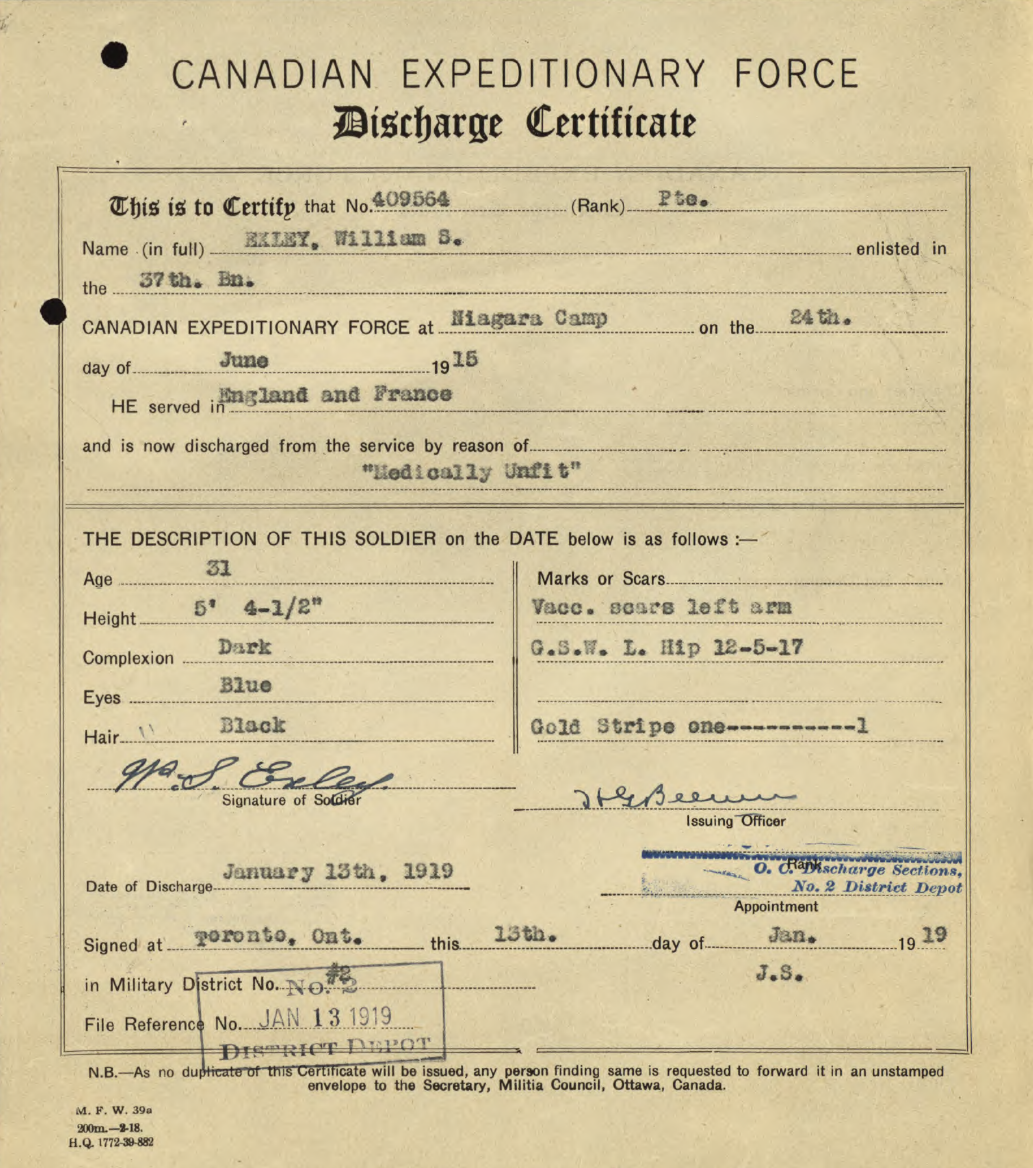 CANADIAN EXPEDITIONARY FORCE
Discharge Certificate
This is to Certify that No. 409564 (Rank) Pte.
Name (in full) EXLEY, William S. enlisted in
the 37th. Bn.
CANADIAN EXPEDITIONARY FORCE at Niagara Camp on the 24th.
day of June 1915
HE served in England and France
and is now discharged from the service by reason of
"Medically Unfit"
THE DESCRIPTION OF THIS SOLDIER on the DATE below is as follows :—
Age 31
Height 5' 4-1/2"
Complexion Dark
Eyes Blue
Hair Black
Marks or Scars
Vacc. scars left arm
G.S.W. L. Hip 12-5-17
Gold Stripe one----------1
W. S. Exley.
Signature of Soldier
Issuing Officer
Date of Discharge January 13th, 1919
Rank
O. C. Discharge Sections,
No. 2 District Depot
Appointment
Signed at Toronto, Ont. this 13th. day of Jan. 1919
J.S.
in Military District No. #2
No. 2
File Reference No. JAN 13 1919
DISTRICT DEPOT
N.B.—As no duplicate of this Certificate will be issued, any person finding same is requested to forward it in an unstamped
envelope to the Secretary, Militia Council, Ottawa, Canada.
M. F. W. 39a
200m.—2-18.
H.Q. 1772-39-882